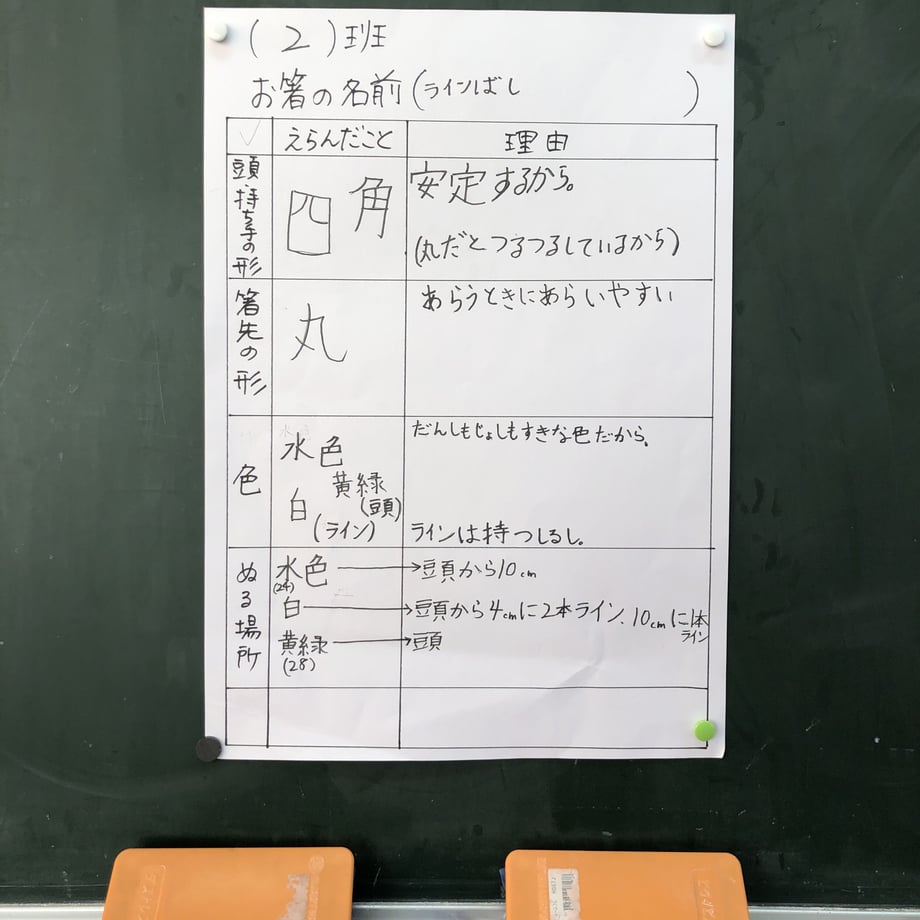 (2)班
お箸の名前(ラインばし)
えらんだこと 理由
頭・持ち手の形
四角
安定するから。
(丸だとつるつるしているから)
箸先の形
丸
あらうときにあらいやすい
色
水色
黄緑
(頭)
白
(ライン)
だんしもじょしもすきな色だから。
ラインは持つしるし。
ぬる場所
水色→頭から10cm
(24)
白→頭から4cmに2本ライン、10cmに1本ライン
黄緑→頭
(28)